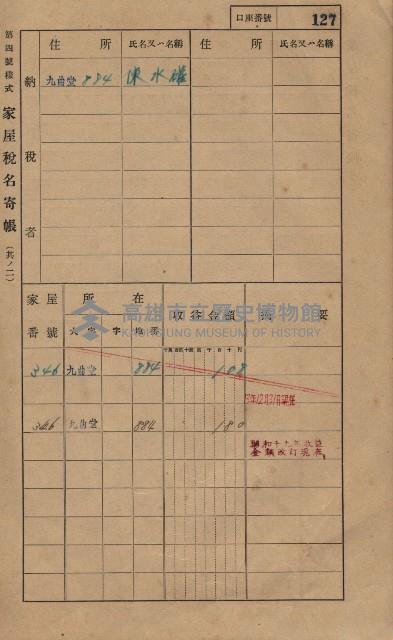 口座番號 127
第四號樣式 家屋稅名寄帳 (共ノ二)
住所 氏名又ハ名稱 住所 氏名又ハ名稱
納稅者
九曲堂 884 陳水
家屋番號 所在 收益金額 摘要
大字 字 地番
高雄市立歷史博物館
KAOHSIUNG MUSEUM OF HISTORY
346 九曲堂 884 108
年12月31日現在
346 九曲堂 884 180
昭和十九年收益
金額改訂現在